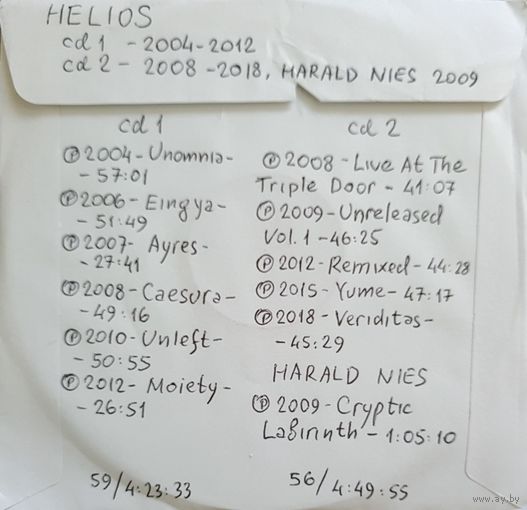 HELIOS
cd 1 - 2004-2012
cd 2 - 2008-2018, HARALD NIES 2009
cd 1
℗ 2004 - Unomnia -
- 57:01
℗ 2006 - Eingya -
- 51:49
℗ 2007 - Ayres -
- 27:41
℗ 2008 - Caesura -
- 49:16
℗ 2010 - Unleft -
- 50:55
℗ 2012 - Moiety -
- 26:51
59/4:23:33
cd 2
℗ 2008 - Live At The
Triple Door - 41:07
℗ 2009 - Unreleased
Vol. 1 - 46:25
℗ 2012 - Remixed - 44:28
℗ 2015 - Yume - 47:17
℗ 2018 - Veriditas -
- 45:29
HARALD NIES
℗ 2009 - Cryptic
Labirinth - 1:05:10
56/4:49:55
www.ay.by